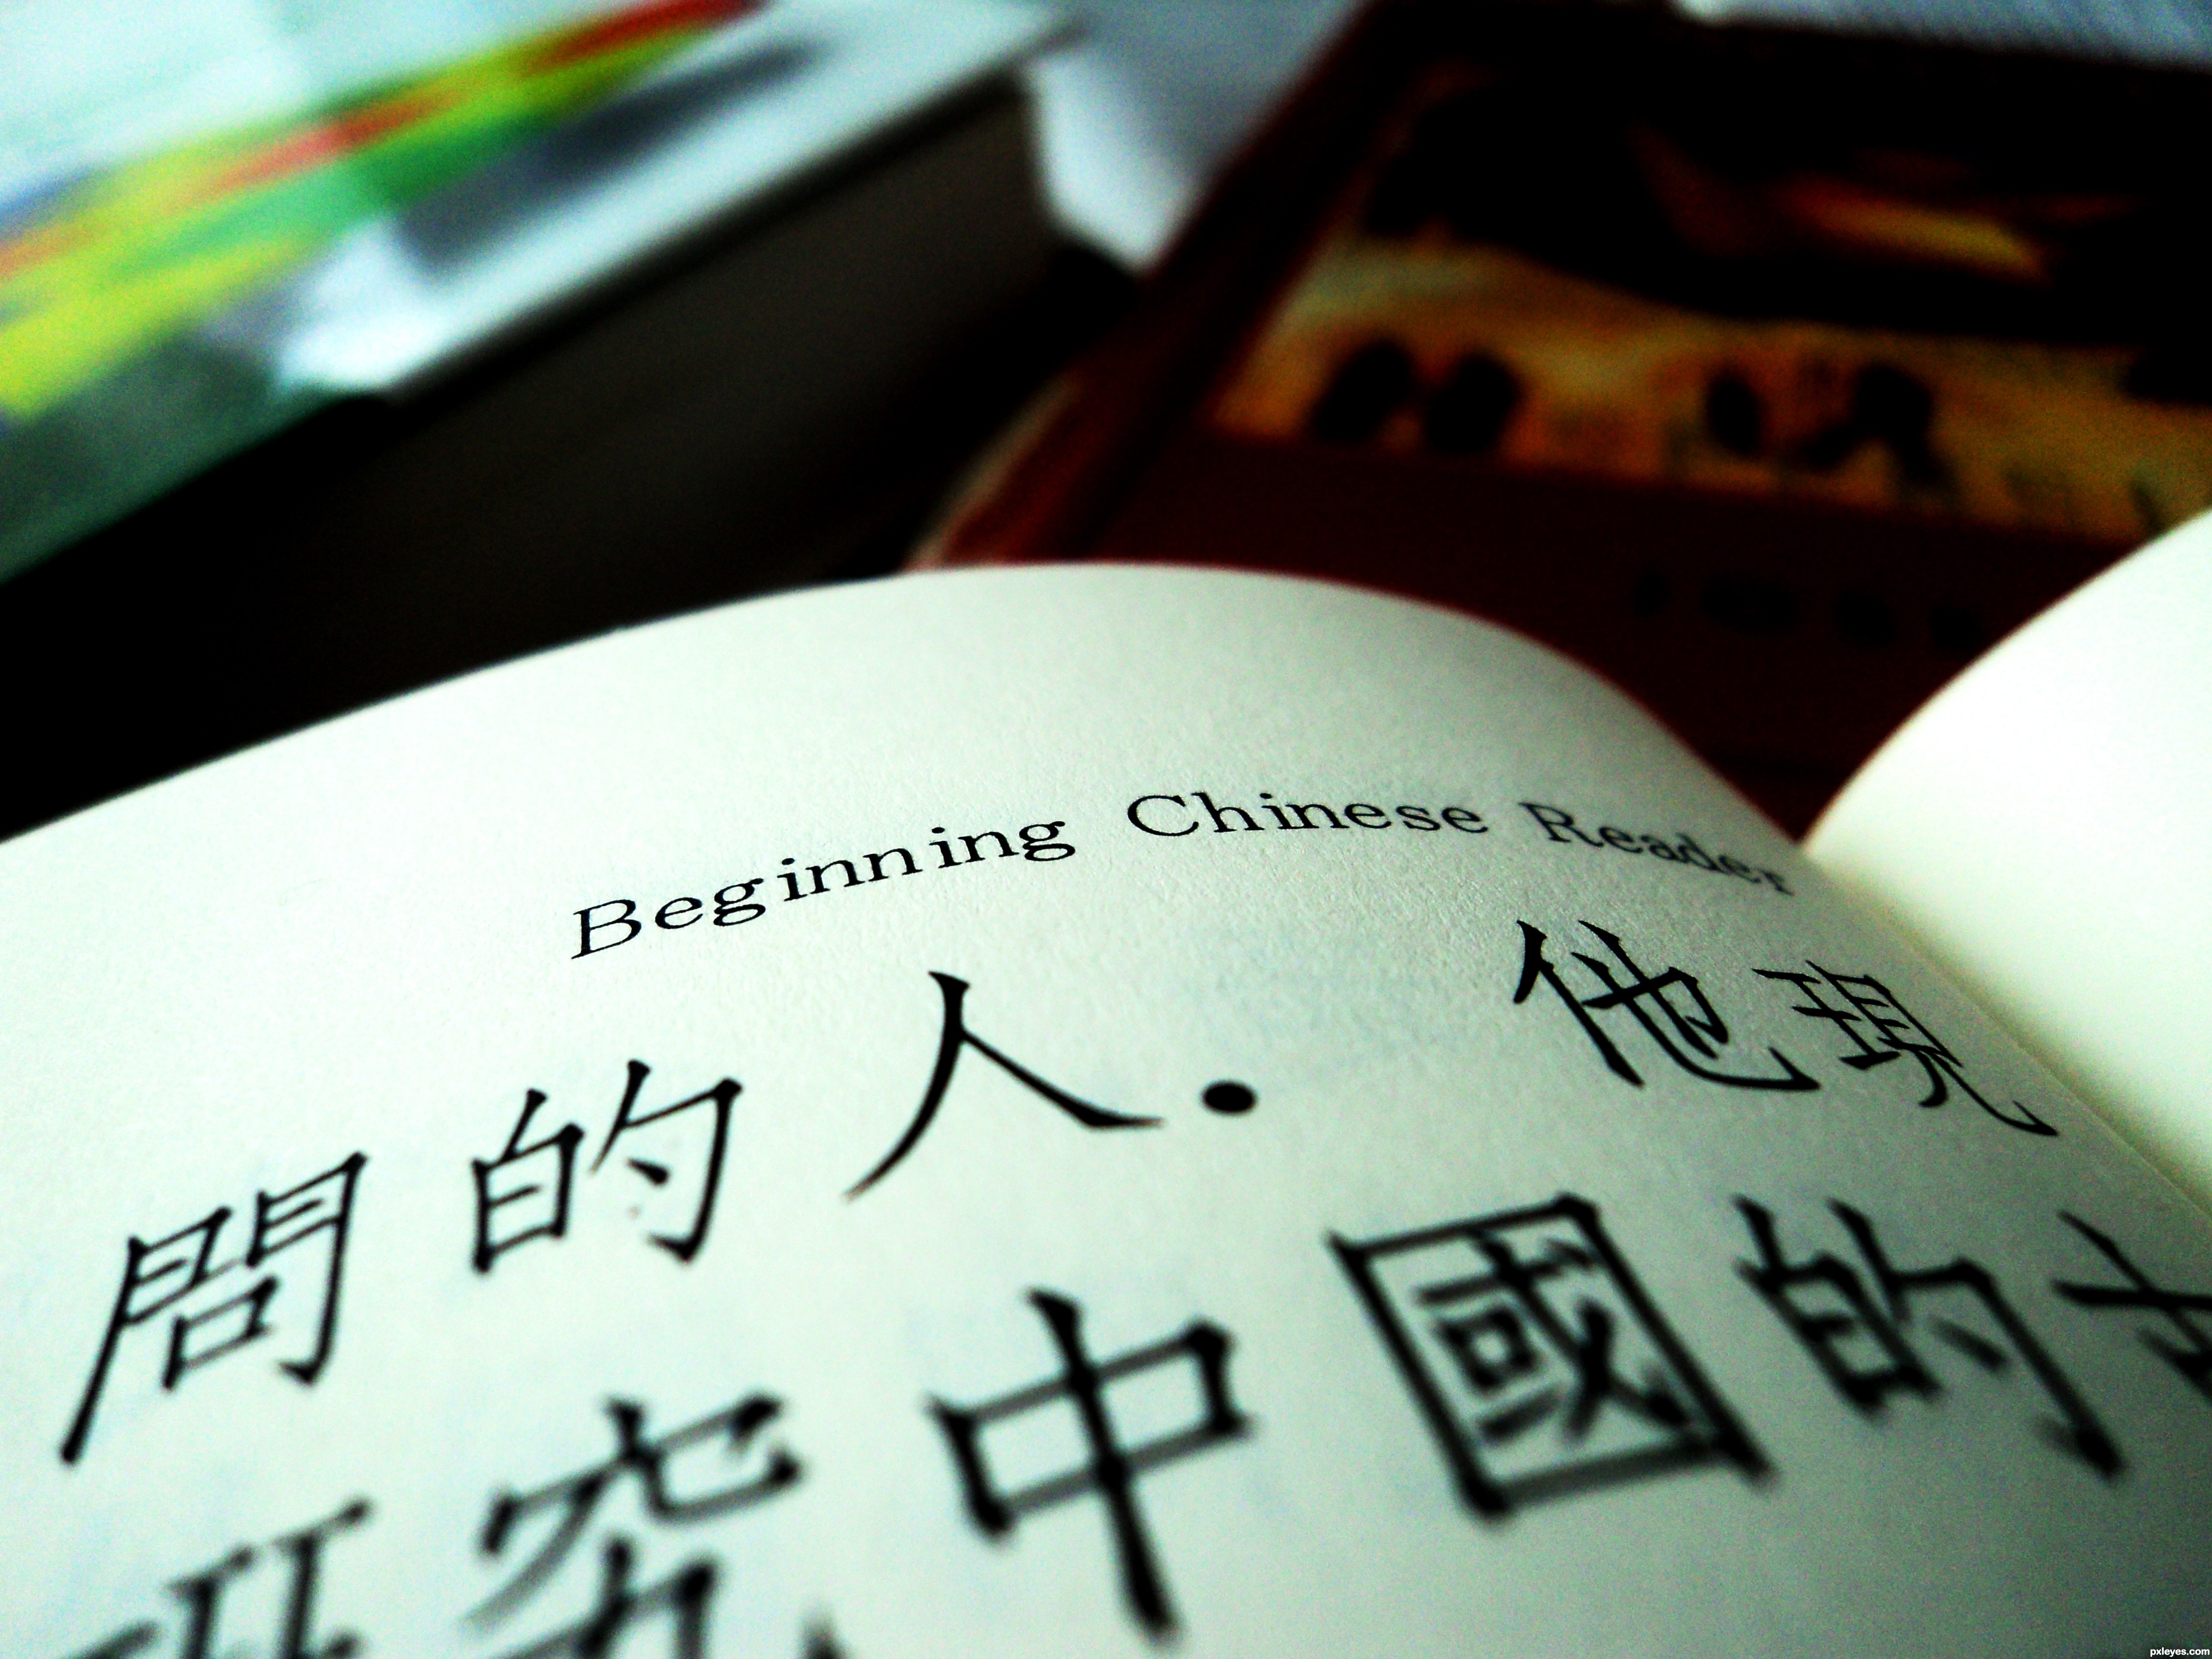 Beginning Chinese Reader
問的人. 他現
研究中國的
pxleyes.com